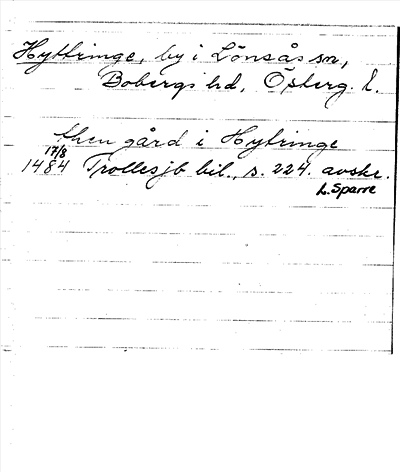 Hyttringe, by i Lönsås sn,
Bobergs hd, Österg. l.
then gård i Hytringe
17/8
1484 Trollesjb bil., s. 224. avskr.
L. Sparre